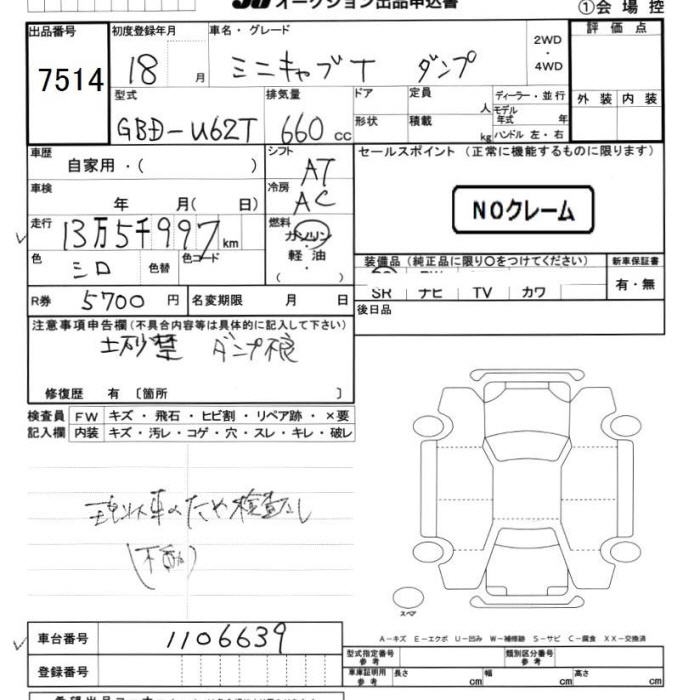 オークション出品申込書
①会場控
出品番号 初度登録年月 車名・グレード 2WD ・ 4WD 評価点
7514 18 月 ミニキャブT ダンプ
型式 排気量 ドア 定員 人 ディーラー・並行 外装 内装
GBD-U62T 660 cc 形状 積載 kg モデル年式 年
ハンドル 左・右
車歴 自家用・( ) シフト AT セールスポイント (正常に機能するものに限ります)
車検 年 月( 日) 冷房 AC
NOクレーム
走行 13万5千997 km 燃料 ガソリン・軽油・( )
色 シロ 色替 色コード 装備品(純正品に限り○をつけてください) 新車保証書
SR ナビ TV カワ 有・無
R券 5700 円 名変期限 月 日 後日品
注意事項申告欄(不具合内容等は具体的に記入して下さい)
土砂禁 ダンプ不良
修復歴 有 〔箇所 〕
検査員 FW キズ・飛石・ヒビ割・リペア跡・×要
記入欄 内装 キズ・汚レ・コゲ・穴・スレ・キレ・破レ
現状車のため検査なし
スペア
A−キズ E−エクボ U−凹み W−補修跡 S−サビ C−腐食 XX−交換済
車台番号 1106639
型式指定番号 参考 類別区分番号 参考
登録番号 車庫証明用 参考 長さ cm 幅 cm 高さ cm